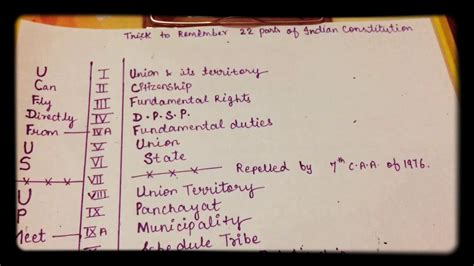 Trick to Remember 22 parts of Indian Constitution
U I Union & its territory
Can II Citizenship
Fly III Fundamental Rights
Directly IV D.P.S.P.
From IVA Fundamental duties
U V Union
S VI State
VII Repelled by 7th C.A.A. of 1976.
U VIII Union Territory
P IX Panchayat
Meet IXA Municipality
Schedule Tribe